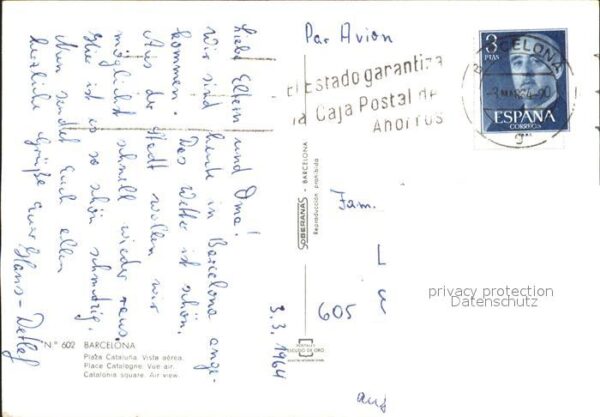 Par Avion
3
PTAS
BARCELONA
-3 MAR 64
ESPAÑA
CORREOS
El Estado garantiza
la Caja Postal de
Ahorros
Liebe Eltern und Oma!
Wir sind heute in Barcelona ange-
kommen. Das Wetter ist schön.
Aus der Stadt wollen wir
möglichst schnell wieder raus.
Hier ist es so schön schmutzig.
Nun sendet Euch allen
herzliche Grüße Euer Hans-Detlef
3.3.1964
SOBERANAS - BARCELONA
Reproducción prohibida
Fam.
L
605
a
aus
privacy protection
Datenschutz
N.º 602 BARCELONA
Plaza Cataluña. Vista aérea.
Place Catalogne. Vue air.
Catalonia square. Air view.
POSTALES
ESCUDO DE ORO